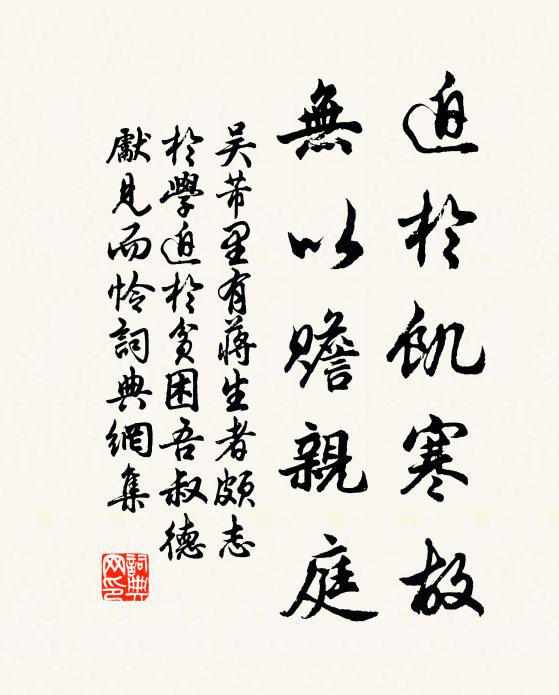 迫於飢寒故
無以贍親庭
吴芾里有蔣生者頗志
於學迫於貧困吾叔德
獻見而怜詞典網集
詞典
网印